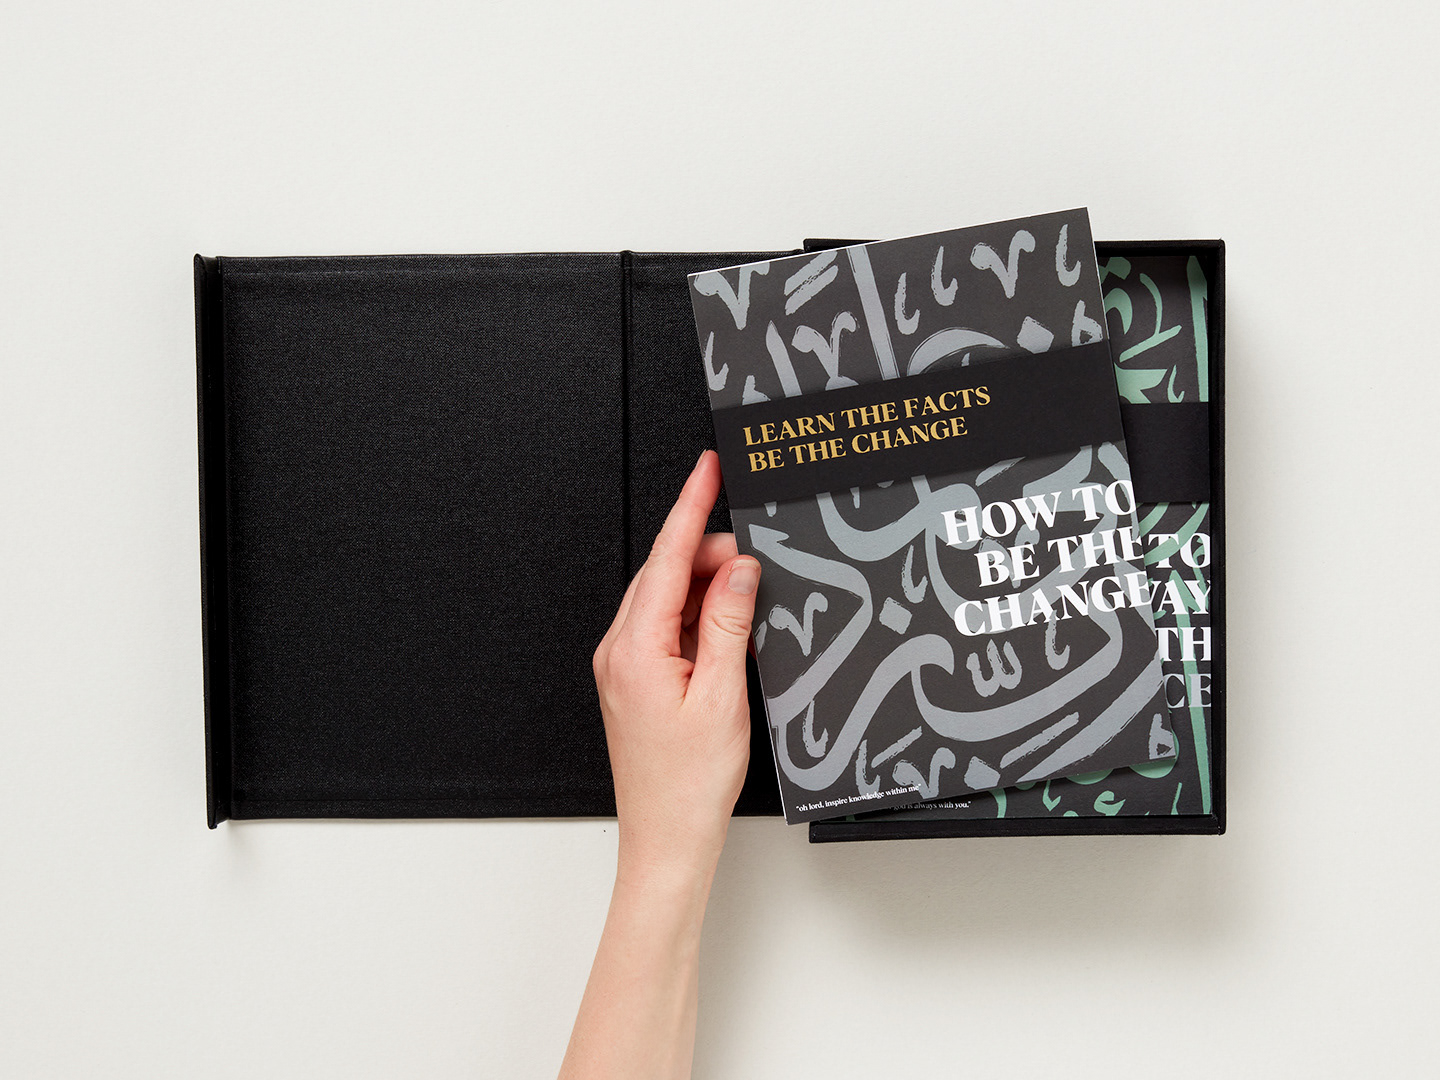 LEARN THE FACTS
BE THE CHANGE
HOW TO
BE THE
CHANGE
"oh lord, inspire knowledge within me"
TO
AY
TH
CE
god is always with you."